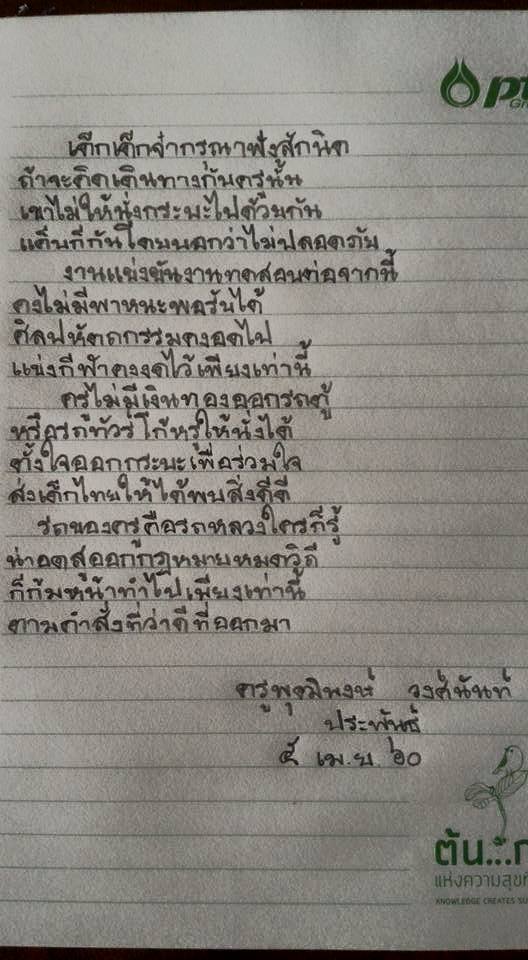 pt
เด็กเด็กจ๋ากรุณาฟังสักนิด
ถ้าจะคิดเดินทางกันครูนั้น
เขาไม่ให้นั่งกระบะไปด้วยกัน
แค็บก็กันโดยบอกว่าไม่ปลอดภัย
งานแข่งขันงานทดสอบต่อจากนี้
คงไม่มีพาหนะพอรับได้
ศิลปหัตถกรรมคงอดไป
แข่งกีฬาคงงดไว้เพียงเท่านี้
ครูไม่มีเงินทองออกรถตู้
หรือรถทัวร์โก้หรูให้นั่งได้
ตั้งใจออกกระบะเพื่อร่วมใจ
ส่งเด็กไทยให้ได้พบสิ่งดีดี
รถของครูคือรถหลวงใครก็รู้
น่าอดสูออกกฎหมายหมดวิถี
ก็ก้มหน้าทำไปเพียงเท่านี้
ตามคำสั่งที่ว่าดีที่ออกมา
ครูพุฒิพงษ์ วงศ์นันท์
ประพันธ์
๕ เม.ย. ๖๐
ต้น...ก
แห่งความสุข
KNOWLEDGE CREATES SU